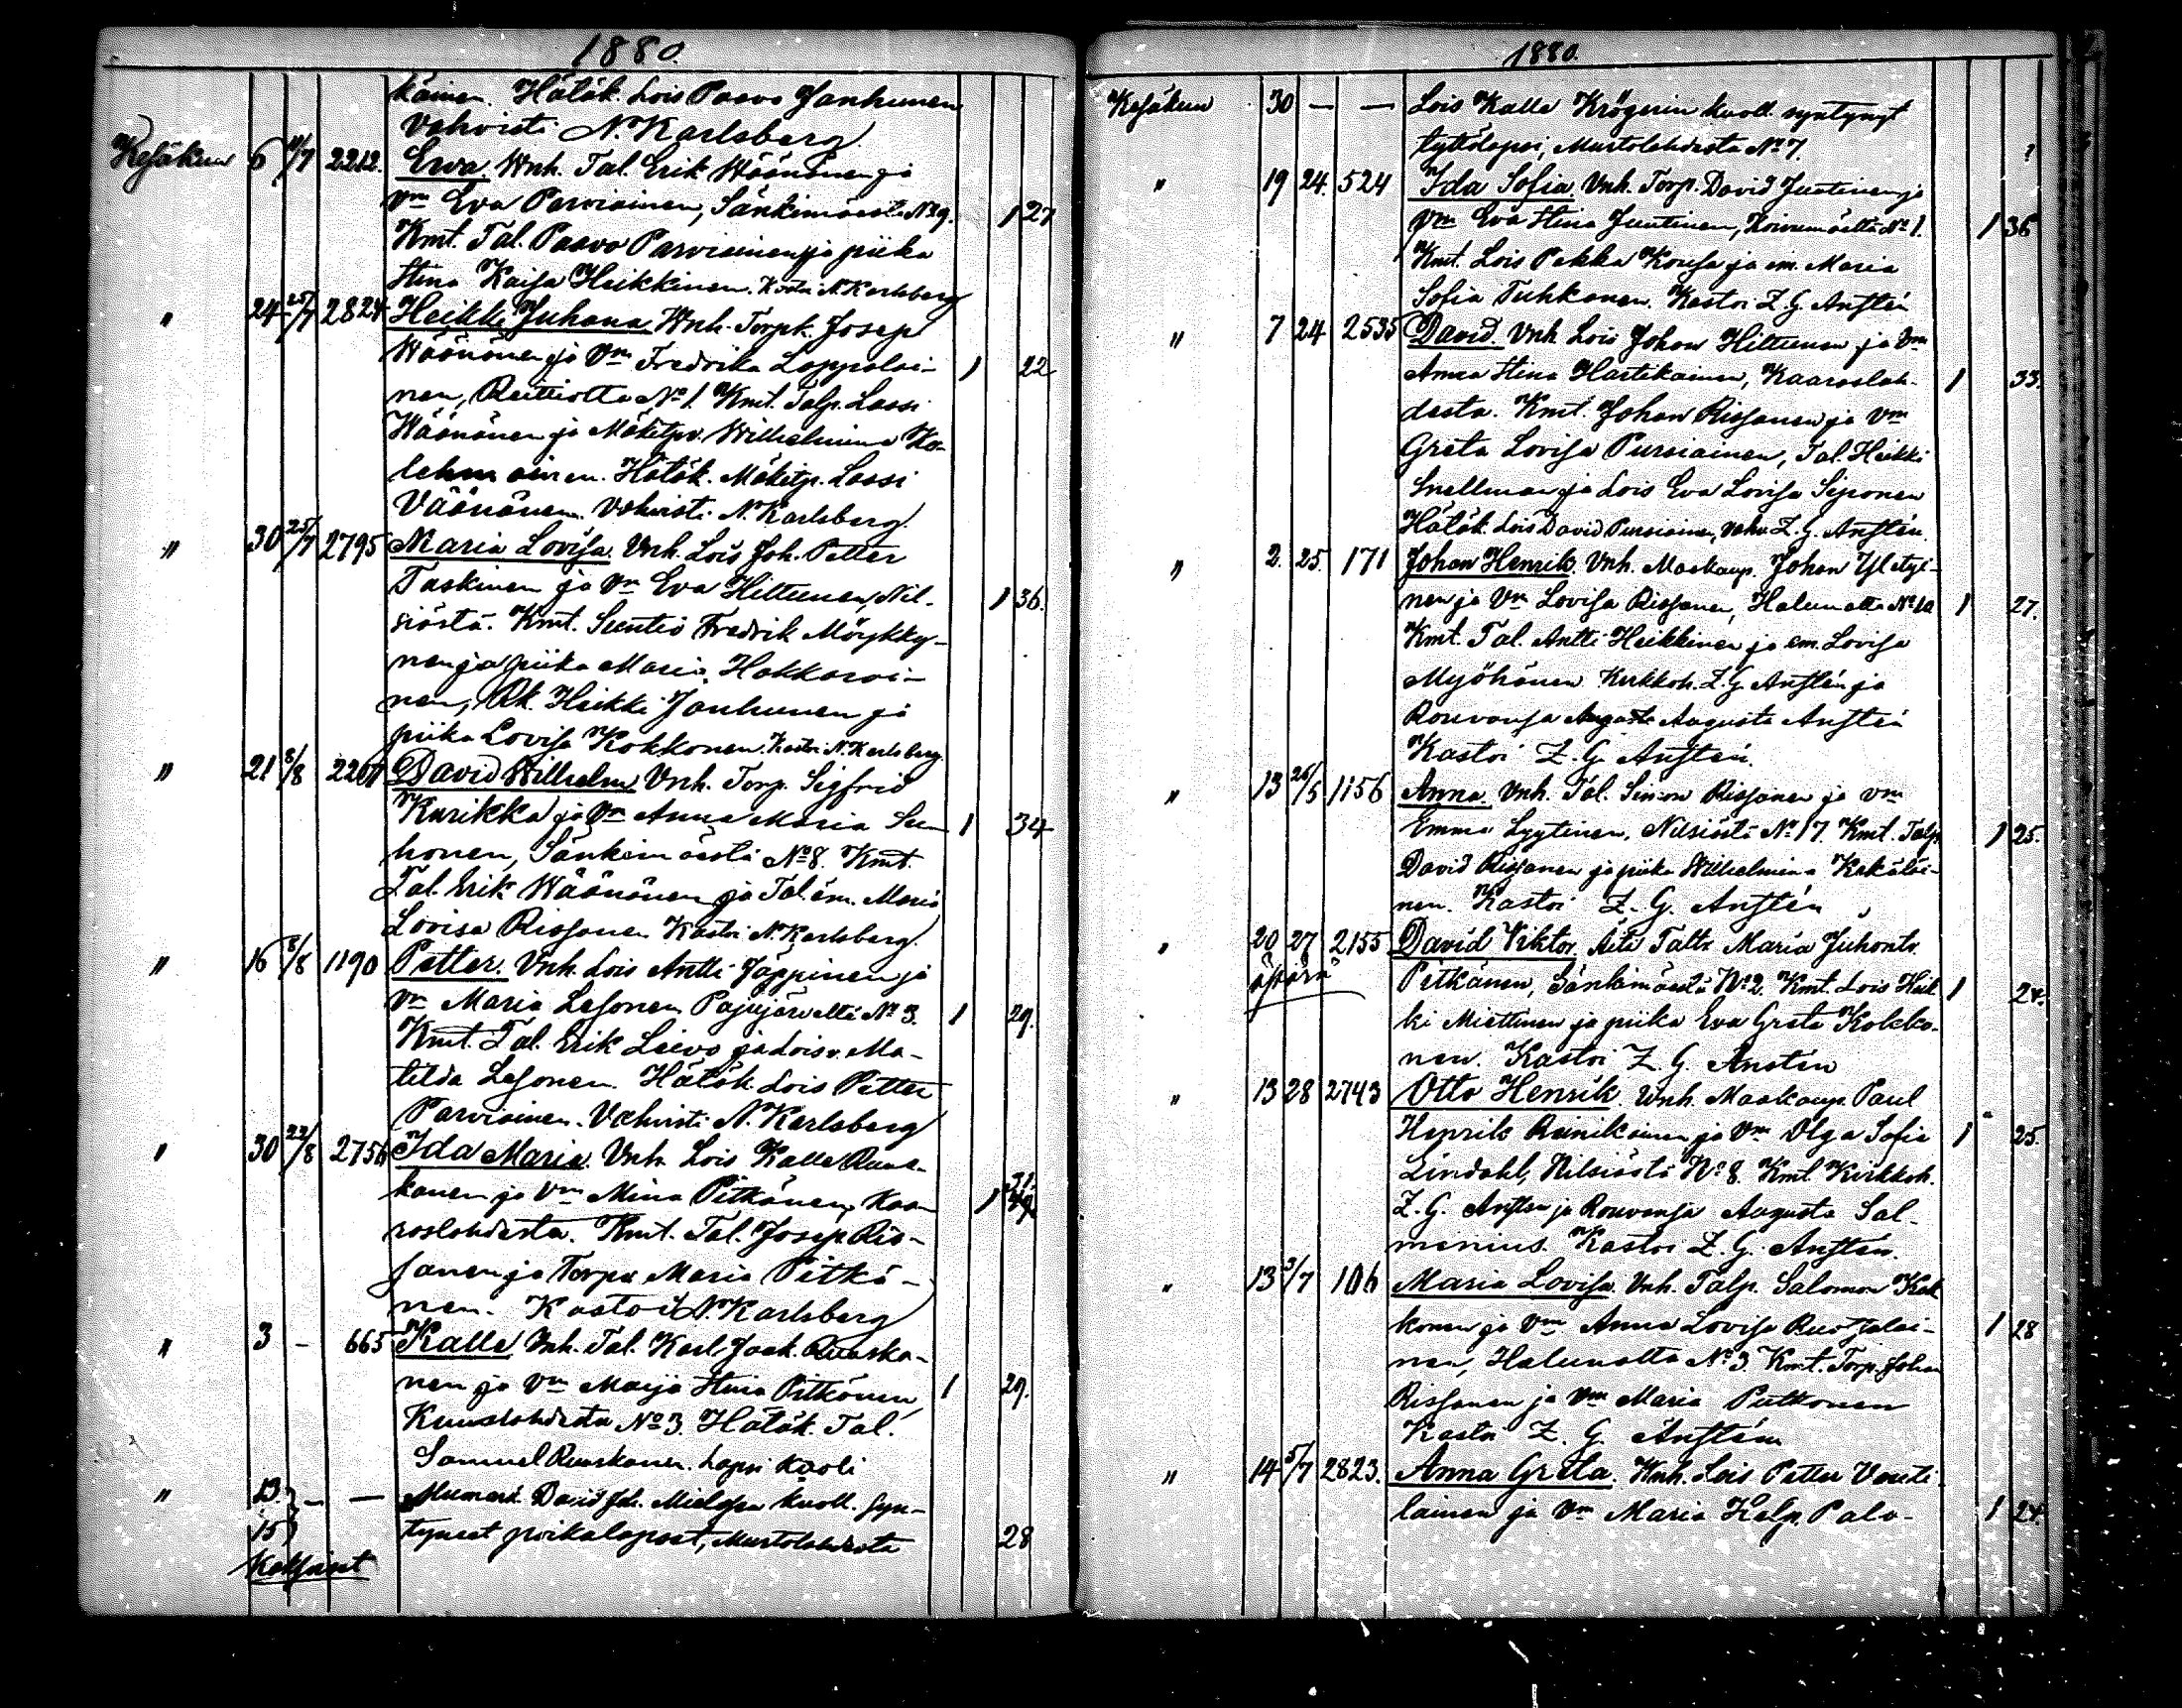 1880.
käinen. Hätäk. Lois Paavo Janhunen
Vahvisti N. Karlsberg.
Kesäkuu 6 11/7 2212. Ewa. Wnh. Tal. Erik Wäänänen ja
Vm Eva Parviainen, Sänkimäestä N29. 1 27
Kmt. Tal. Paavo Parviainen ja piika
Stina Kaisa Heikkinen. Kastoi N. Karlsberg
" 24 25/7 2824 Heikki Juhana Wnh. Torpk. Josep
Wäänänen ja Vm Fredrika Loppolai- 1 22
nen, Reittiotta No 1. Kmt. Talp. Lassi
Wäänänen ja Mäkitpv. Wilhelmiina Ko-
lehmainen. Hätäk. Mäkitp. Lassi
Väänänen. Vahvisti N. Karlsberg.
" 30 25/7 2795 Maria Lovisa. Vnh. Lois Joh. Petter
Taskinen ja Vm Eva Hiltunen, Nil- 1 36.
siästä. Kmt. Suntio Fredrik Möykky-
nen ja piika Maria Hakkarai-
nen, Rk. Heikki Janhunen ja
piika Lovisa Kokkonen. Kastoi N. Karlsberg.
" 21 8/8 2207 David Wilhelm Vnh. Torp. Sigfrid
Kurikka ja Vm Anna Maria Su- 1 34
honen, Sänkimäestä No 8. Kmt.
Tal. Erik Wäänänen ja Tal. em. Maria
Lovisa Rissanen Kastoi N. Karlsberg.
" 16 8/8 1190 Petter. Vnh. Lois Antti Jäppinen ja
Vm Maria Lesonen Pajujärveltä No 3. 1 29.
Kmt. Tal. Erik Leivo ja Lois v. Ma-
tilda Lesonen. Hätäk. Lois Petter
Parviainen. Vahvisti N. Karlsberg
" 30 22/8 2756 Ida Maria. Vnh. Lois Kalle Ruus-
kanen ja Vm Mina Pitkänen, Kaa- 1
raslahdesta. Kmt. Tal. Josep Ris-
sanen ja Torpv. Maria Pitkä-
nen. Kastoi N. Karlsberg
" 3 - 665 Kalle Vnh. Tal. Karl Jaak. Ruuska-
nen ja Vm Maija Stina Pitkänen 1 29.
Kuuslahdesta No 3. Hätäk. Tal.
Samuel Ruuskanen. Lapsi kuoli
" 13. — — David Joh. kuoll. syn-
15 tyneet poikalapset, Murtolahdesta 28
Kaksoiset
1880.
Kesäkuu 30 — — Lois Kalle Krögerin kuoll. syntynyt
tyttölapsi, Murtolahdesta No 7. ?
" 19 24. 524 Ida Sofia. Vnh. Torp. David Juntinen ja
Vm Eva Stina Juntinen, Koivumäeltä No 1. 1 36
Kmt. Lois Pekka Konsa ja em. Maria
Sofia Tuhkanen. Kastoi Z. G. Anstén
" 7 24 2535 David. Vnh Lois Johan Hiltunen ja Vm
Anna Stina Hartikainen, Kaaraslah- 1 33.
desta. Kmt. Johan Rissanen ja Vm
Greta Lovisa Pursiainen, Tal. Heikki
Snellman ja Lois Eva Lovisa Siponen
Hätäk. Lois David Pursiainen, Vahv. Z. G. Anstén.
" 2. 25. 171 Johan Henrik. Vnh. Maakaup. Johan
nen ja Vm Lovisa Rissanen, Halunalta No 10 1 27.
Kmt. Tal. Antti Heikkinen ja em. Lovisa
Myöhänen Kirkkoh. Z. G. Anstén ja
Rouvansa Augusta Anstén
Kastoi Z. G. Anstén.
" 13 26/5 1156 Anna. Vnh. Tal. Simon Rissanen ja Vm
Emma Lyytinen, Nilsiästä No 17. Kmt. Talp. 1 25.
David Rissanen ja piika Wilhelmina Kekäläi-
nen. Kastoi Z. G. Anstén
" 20 27 2155 David Viktor, Äiti Taltr. Maria Juhontr.
äpärä Pitkänen, Sänkimäestä No 2. Kmt. Lois Heik- 1 24.
ki Miettinen ja piika Eva Greta Kokko-
nen. Kastoi Z. G. Anstén
" 13 28 2743 Otto Henrik. Wnh. Maakaup. Paul
Henrik Reinikainen ja Vm Olga Sofia 1 25.
Lindahl, Nilsiästä No 8. Kmt. Kirkkoh.
Z. G. Anstén ja Rouvansa Augusta Sal-
menius. Kastoi Z. G. Anstén.
" 13 3/7 106 Maria Lovisa. Vnh. Talp. Salomon Kok-
konen ja Vm Anna Lovisa 1 28
nen, Halunalta No 3. Kmt. Torp. Johan
Rissanen ja Vm Maria Putkonen
Kastoi Z. G. Anstén
" 14 5/7 2823. Anna Greta. Wnh. Lois Petter Vouti-
lainen ja Vm Maria Help. Palo- 1 24.